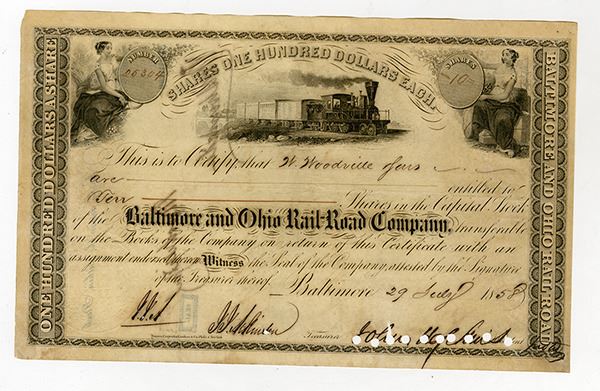 NUMBER
25304
SHARES ONE HUNDRED DOLLARS EACH
SHARES
10
ONE HUNDRED DOLLARS A SHARE
BALTIMORE AND OHIO RAIL-ROAD
This is to Certify that W Woodville
are entitled to
Ten Shares in the Capital Stock
of the Baltimore and Ohio Rail-Road Company, transferable
on the Books of the Company on return of this Certificate with an
assignment endorsed thereon Witness the Seal of the Company, attested by the Signature
of the Treasurer thereof
Baltimore 29 July 1858
Treasurer